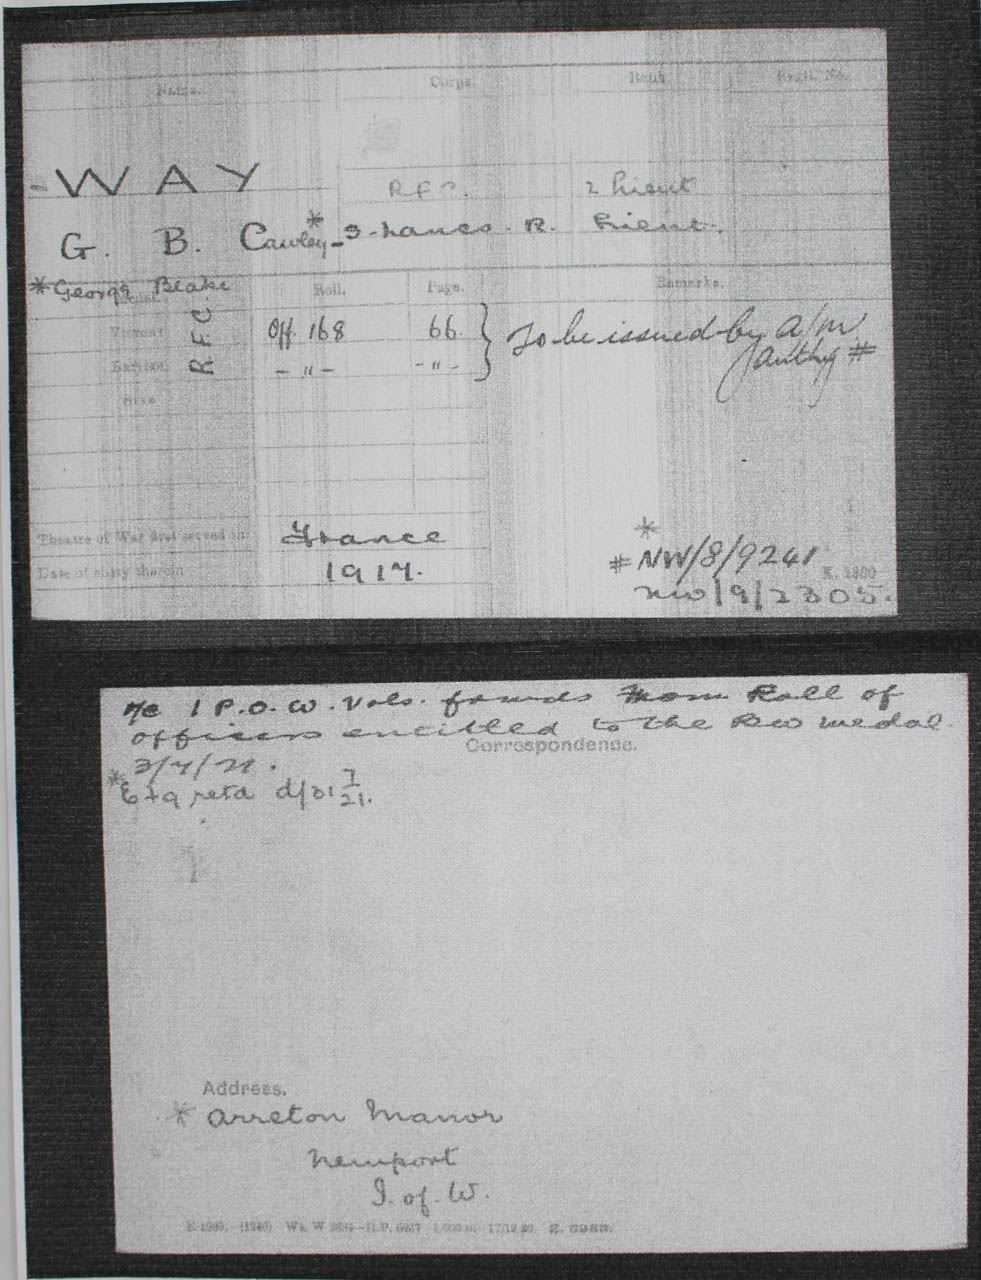 Name. Corps. Rank Regtl. No.
WAY R.F.C. 2 Lieut
G. B. Cawley * S. Lancs. R. Lieut.
* George Blake
Medal. Roll. Page. Remarks.
Victory R.F.C. Off. 168 66 To be issued by A/M
British - " - - " - authy #
Star
Theatre of War first served in France
Date of entry therein 1917.
*
# NW/8/9241 K. 1380
NW/9/2305.
O/C 1 P.O.W. Vols. forwds Nom Roll of
officers entitled to the BW medal
Correspondence.
3/7/21.
* E + 9 retd d/31 7/21.
Address.
* Arreton Manor
Newport
I. of. W.